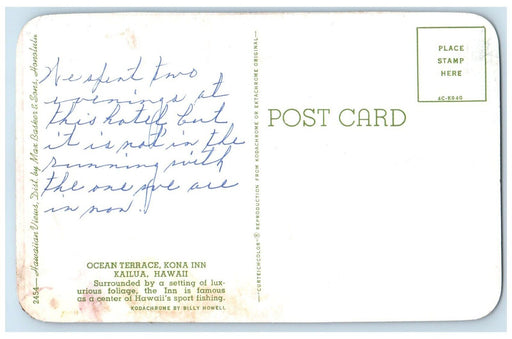 We spent two
evenings at
this hotel but
it is not in the
running with
the one we are
in now.
OCEAN TERRACE, KONA INN
KAILUA, HAWAII
Surrounded by a setting of lux-
urious foliage, the Inn is famous
as a center of Hawaii's sport fishing.
KODACHROME BY BILLY HOWELL
2454—Hawaiian Views, Dist. by Max Basker & Sons, Honolulu
"CURTEICHCOLOR"® REPRODUCTION FROM KODACHROME OR EKTACHROME ORIGINAL
POST CARD
PLACE
STAMP
HERE
6C-K640